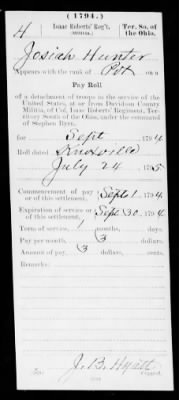 (1794.)
H Isaac Roberts' Reg't (Militia.) Ter. So. of the Ohio.
Josiah Hunter
Appears with the rank of Pvt on a
Pay Roll
of a detachment of troops in the service of the
United States, at or from Davidson County
Militia, of Col. Isaac Roberts' Regiment, Ter-
ritory South of the Ohio, under the command
of Stephen
for Sept 1794
Roll dated Knoxville
July 24 1795
Commencement of pay or of this settlement, Sept 1, 1794
Expiration of service or of this settlement, Sept 30, 1794
Term of service, months, days.
Pay per month, 3 dollars, cents.
Amount of pay, 3 dollars, cents.
Remarks:
J. B. Hyatt
Copyist.